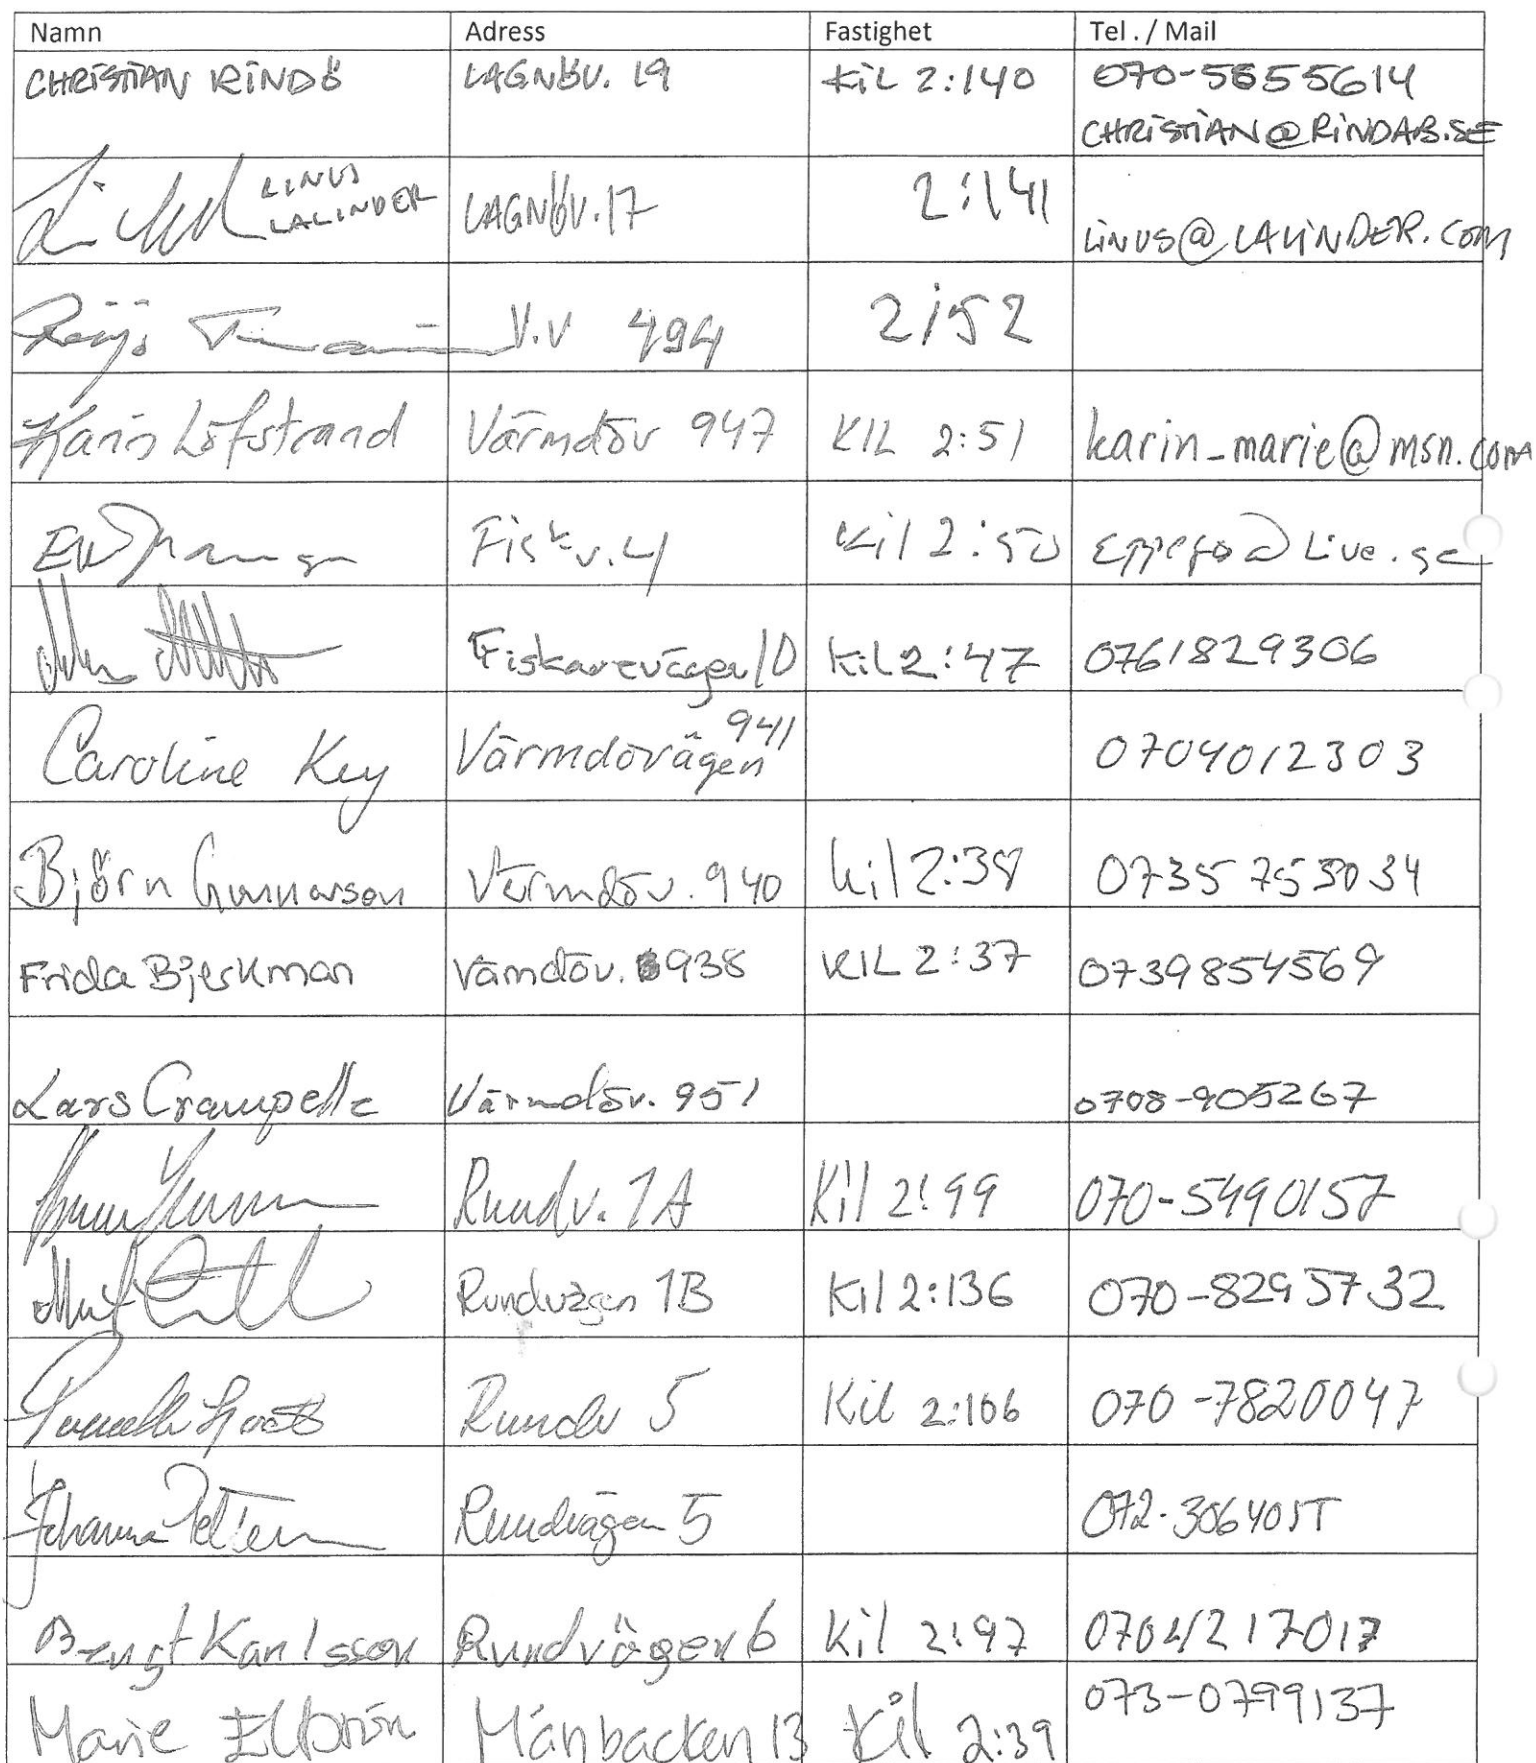 Namn Adress Fastighet Tel . / Mail
CHRISTIAN RINDÖ LAGNÖV. 19 KIL 2:140 070-5655614
CHRISTIAN@RINDAB.SE
LINUS LALINDER LAGNÖV.17 2:141
LINUS@LALINDER.COM
V.V 494 2:52
Karin Löfstrand Värmdöv 947 KIL 2:51 karin_marie@msn.com
Fiskv.4 Kil 2:50 Live.se
Fiskarevägen 10 Kil 2:47 0761829306
Caroline Key Värmdövägen 941 0704012303
Björn Gunnarson Värmdöv. 940 Kil 2:38 0735753034
Frida Bjerkman Värmdöv. 938 KIL 2:37 0739854569
Lars Crampelle Värmdöv. 951 0708-905267
Rundv. 1A Kil 2:99 070-5490157
Rundvägen 1B Kil 2:136 070-8295732
Rundv 5 Kil 2:106 070-7820047
Johanna Rundvägen 5 072-306405T
Bengt Karlsson Rundvägen 6 Kil 2:97 0704217017
Marie Månbacken 13 Kil 2:39 073-0799137